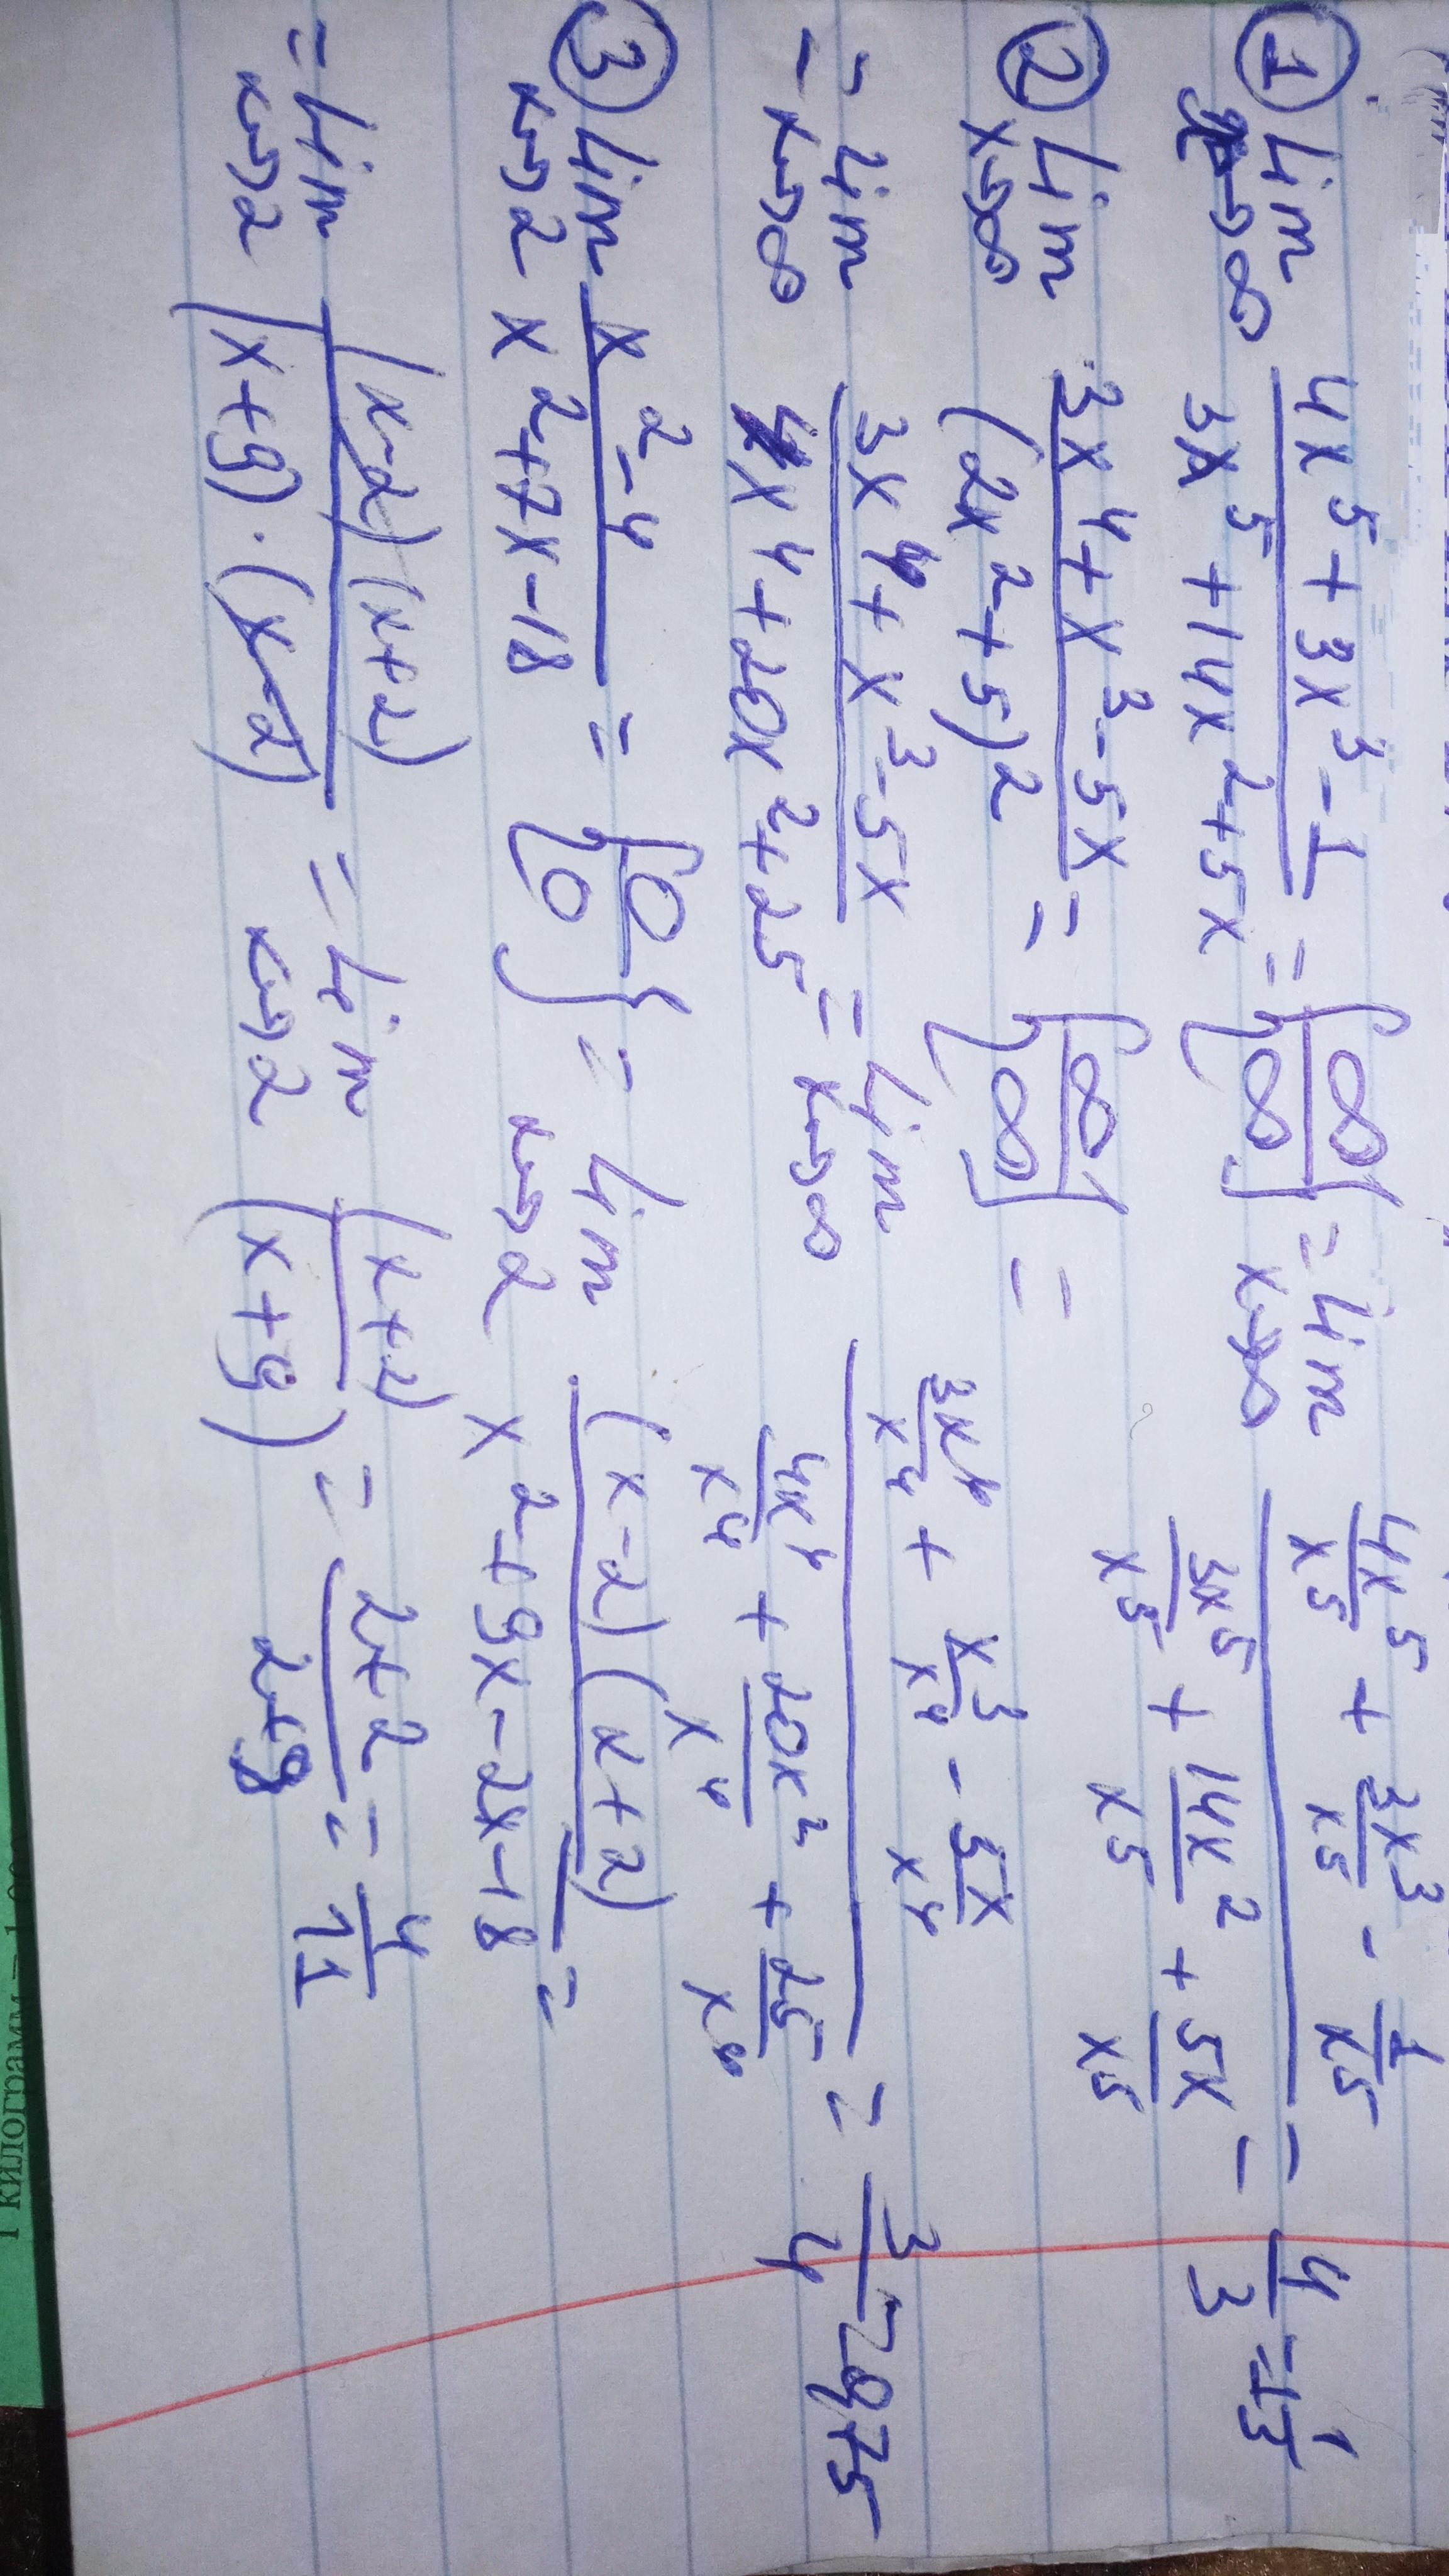 ① lim x→∞ (4x⁵ + 3x³ - 1)/(3x⁵ + 14x² + 5x) = {∞/∞} = lim x→∞ (4x⁵/x⁵ + 3x³/x⁵ - 1/x⁵)/(3x⁵/x⁵ + 14x²/x⁵ + 5x/x⁵) = 4/3 = 1 1/3
② lim x→∞ (3x⁴ + x³ - 5x)/(2x² + 5)² = {∞/∞} =
= lim x→∞ (3x⁴ + x³ - 5x)/(4x⁴ + 20x² + 25) = lim x→∞ (3x⁴/x⁴ + x³/x⁴ - 5x/x⁴)/(4x⁴/x⁴ + 20x²/x⁴ + 25/x⁴) = 3/4 = 0,75
③ lim x→2 (x² - 4)/(x² + 7x - 18) = {0/0} = lim x→2 (x - 2)(x + 2)/(x² + 9x - 2x - 18) =
= lim x→2 (x-2)(x+2)/((x+9)·(x-2)) = lim x→2 (x+2)/(x+9) = (2+2)/(2+9) = 4/11
1 килограмм =